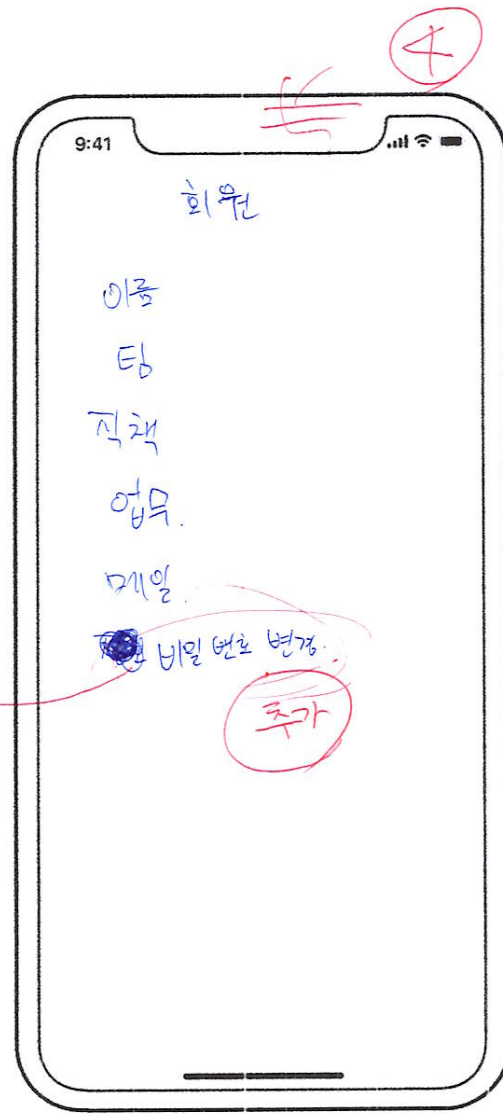 4
9:41
회원
이름
팀
직책
업무.
메일.
비밀 번호 변경.
추가